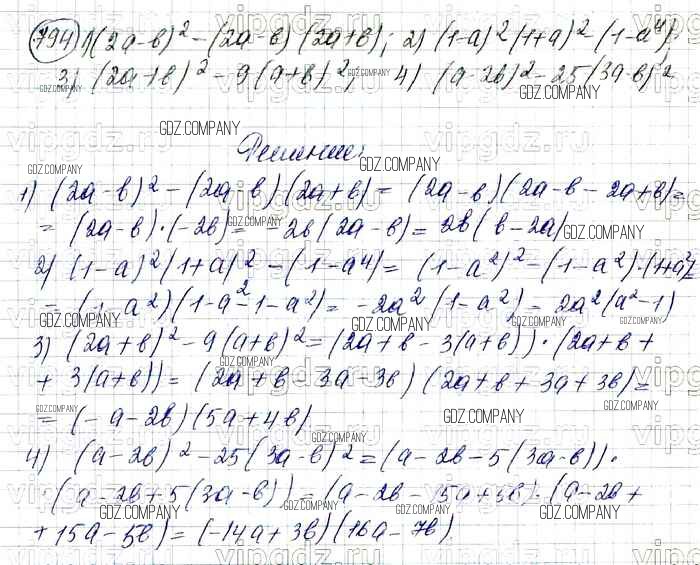 794 1) (2a-b)² - (2a-b)(2a+b); 2) (1-a)²(1+a)² - (1-a⁴);
3) (2a+b)² - 9(a+b)²; 4) (a-2b)² - 25(3a-b)²
Решение:
1) (2a-b)² - (2a-b)(2a+b) = (2a-b)(2a-b-2a+b) =
= (2a-b)·(-2b) = -2b(2a-b) = 2b(b-2a)
2) (1-a)²(1+a)² - (1-a⁴) = (1-a²)² - (1-a²)·(1+a²) =
= (1-a²)(1-a²-1-a²) = -2a²(1-a²) = 2a²(a²-1)
3) (2a+b)² - 9(a+b)² = (2a+b - 3(a+b))·(2a+b+
+ 3(a+b)) = (2a+b - 3a-3b)(2a+b+3a+3b) =
= (-a-2b)(5a+4b)
4) (a-2b)² - 25(3a-b)² = (a-2b-5(3a-b))·
(a-2b+5(3a-b)) = (a-2b-15a+5b)·(a-2b+
+15a-5b) = (-14a+3b)(16a-7b)
GDZ.COMPANY
vipgdz.ru